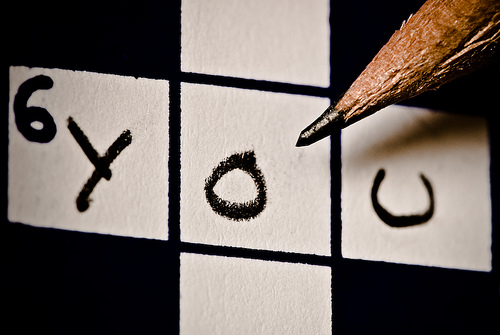 6 YOU